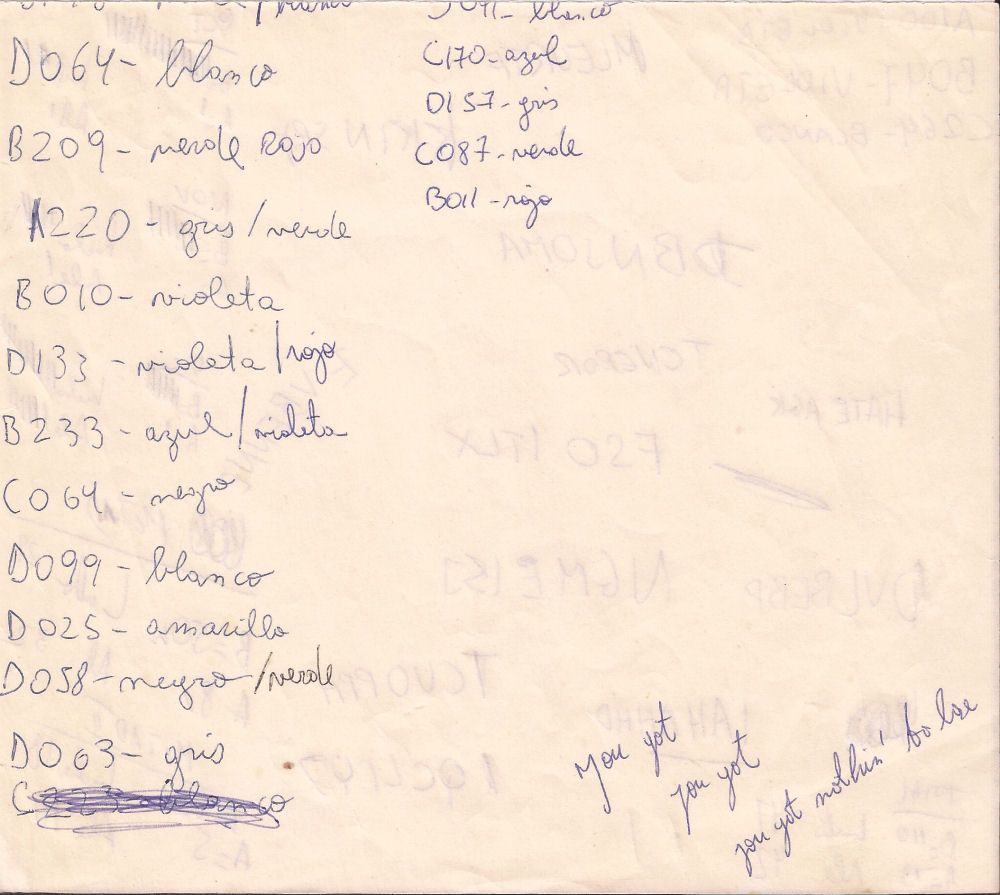 D064 - blanco
B209 - verde Rojo
A220 - gris/verde
B010 - violeta
D133 - violeta/rojo
B233 - azul/violeta
C064 - negro
D099 - blanco
D025 - amarillo
D058 - negro/verde
D063 - gris
C223 - blanco
blanco
C170 - azul
D157 - gris
C087 - verde
B011 - rojo
you got
you got
you got nothin' to lose